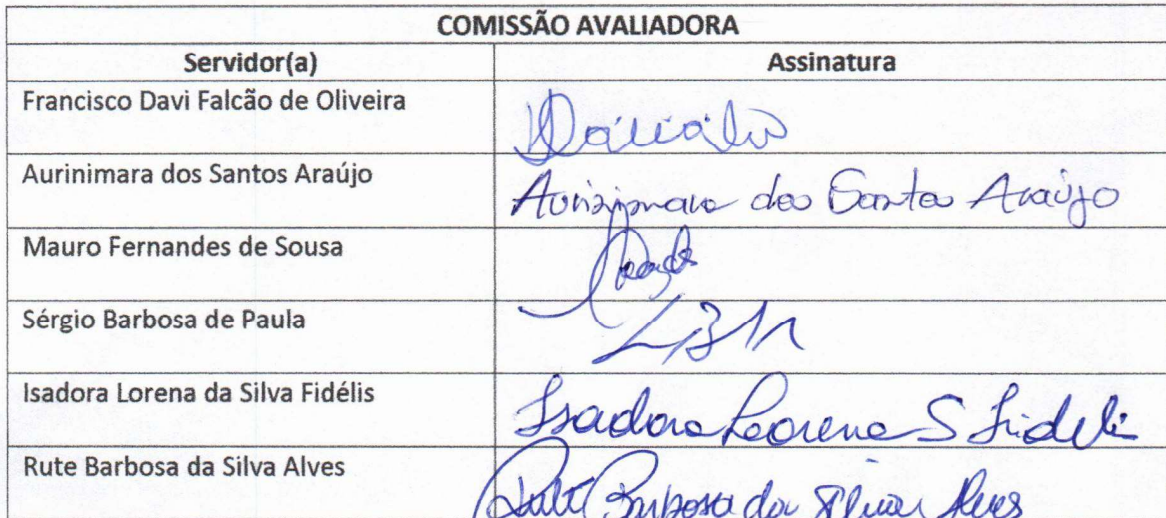 COMISSÃO AVALIADORA
Servidor(a) Assinatura
Francisco Davi Falcão de Oliveira
Aurinimara dos Santos Araújo Aurinimara dos Santos Araújo
Mauro Fernandes de Sousa
Sérgio Barbosa de Paula
Isadora Lorena da Silva Fidélis Isadora Lorena S Fidelis
Rute Barbosa da Silva Alves Rute Barbosa da Silva Alves